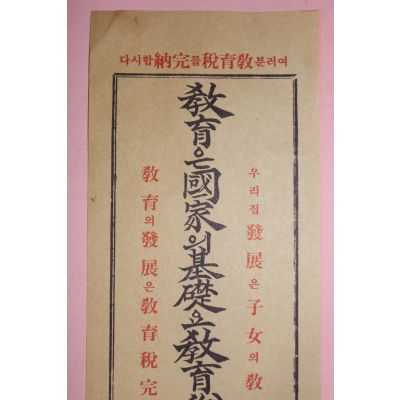 여러분敎育稅를完納합시다
우리집 發展은 子女의 敎
敎育은國家의基礎요敎育
敎育의 發展은 敎育稅完